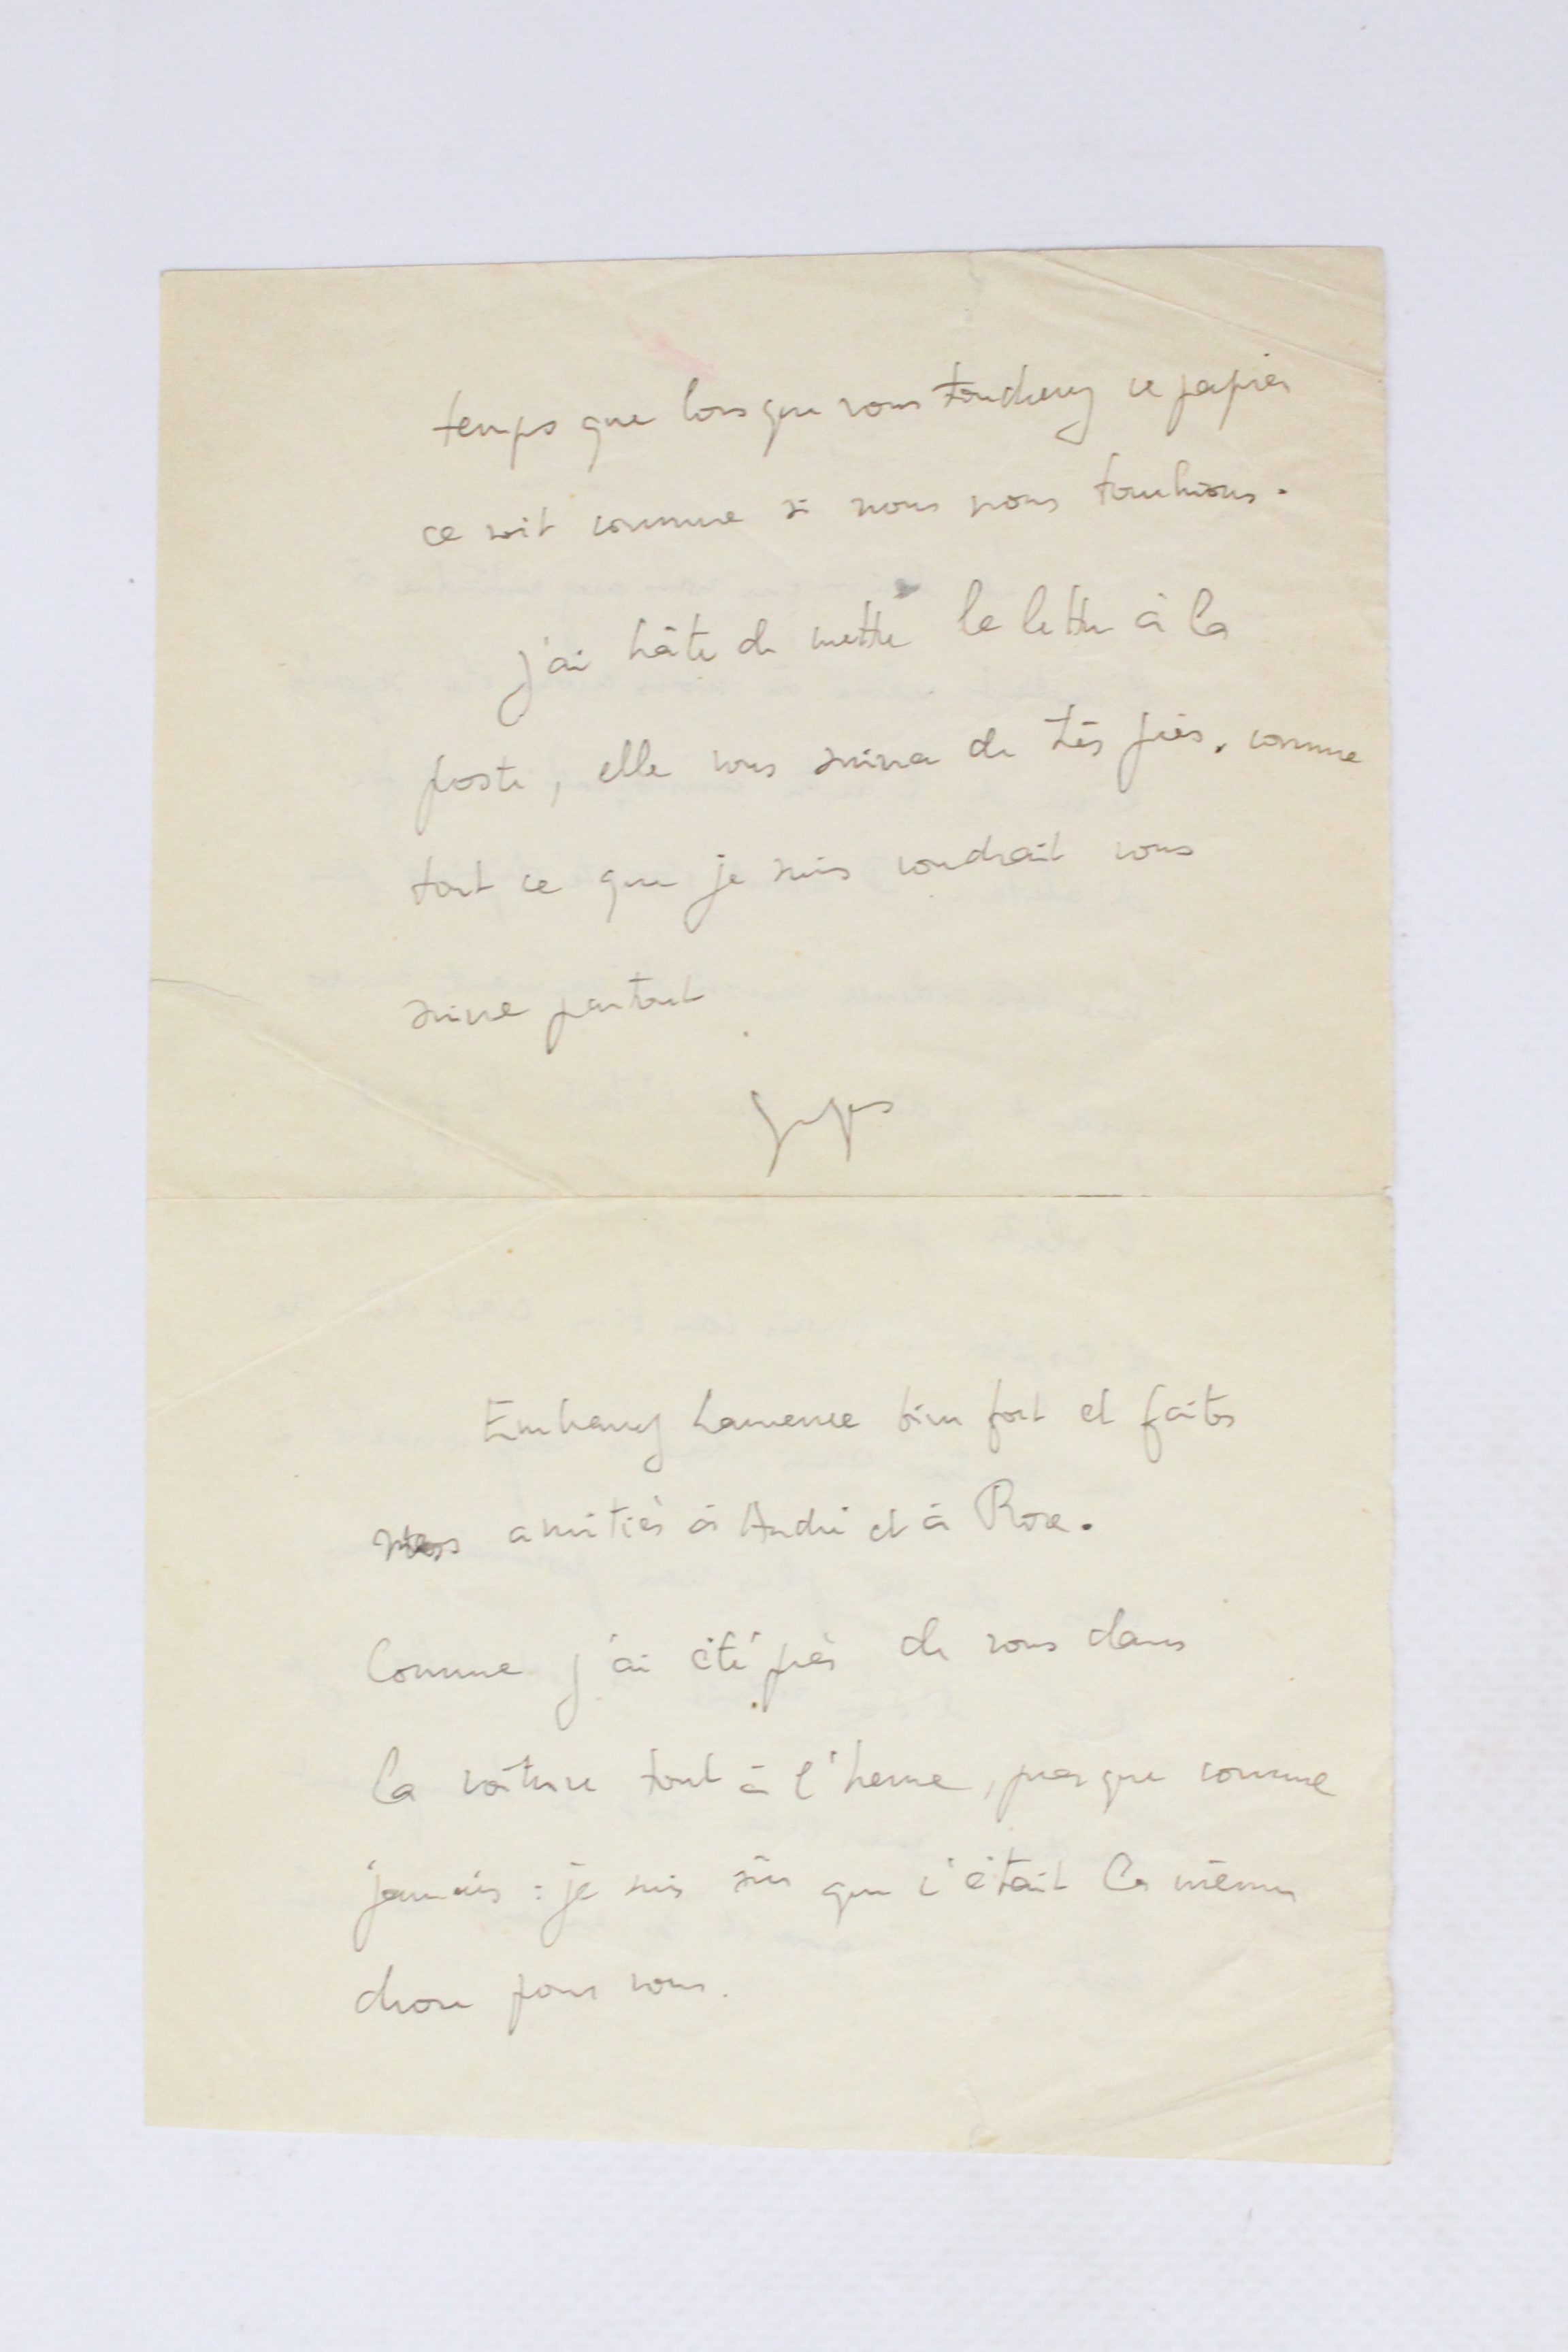 temps que lorsque vous toucherez ce papier
ce soit comme si nous nous touchions.
J'ai hâte de mettre la lettre à la
poste, elle vous suivra de très près, comme
tout ce que je suis voudrait vous
suivre partout
Embrassez Laurence bien fort et faites
mes amitiés à André et à Rose.
Comme j'ai été près de vous dans
la voiture tout à l'heure, presque comme
jamais : je suis sûr que c'était la même
chose pour vous.